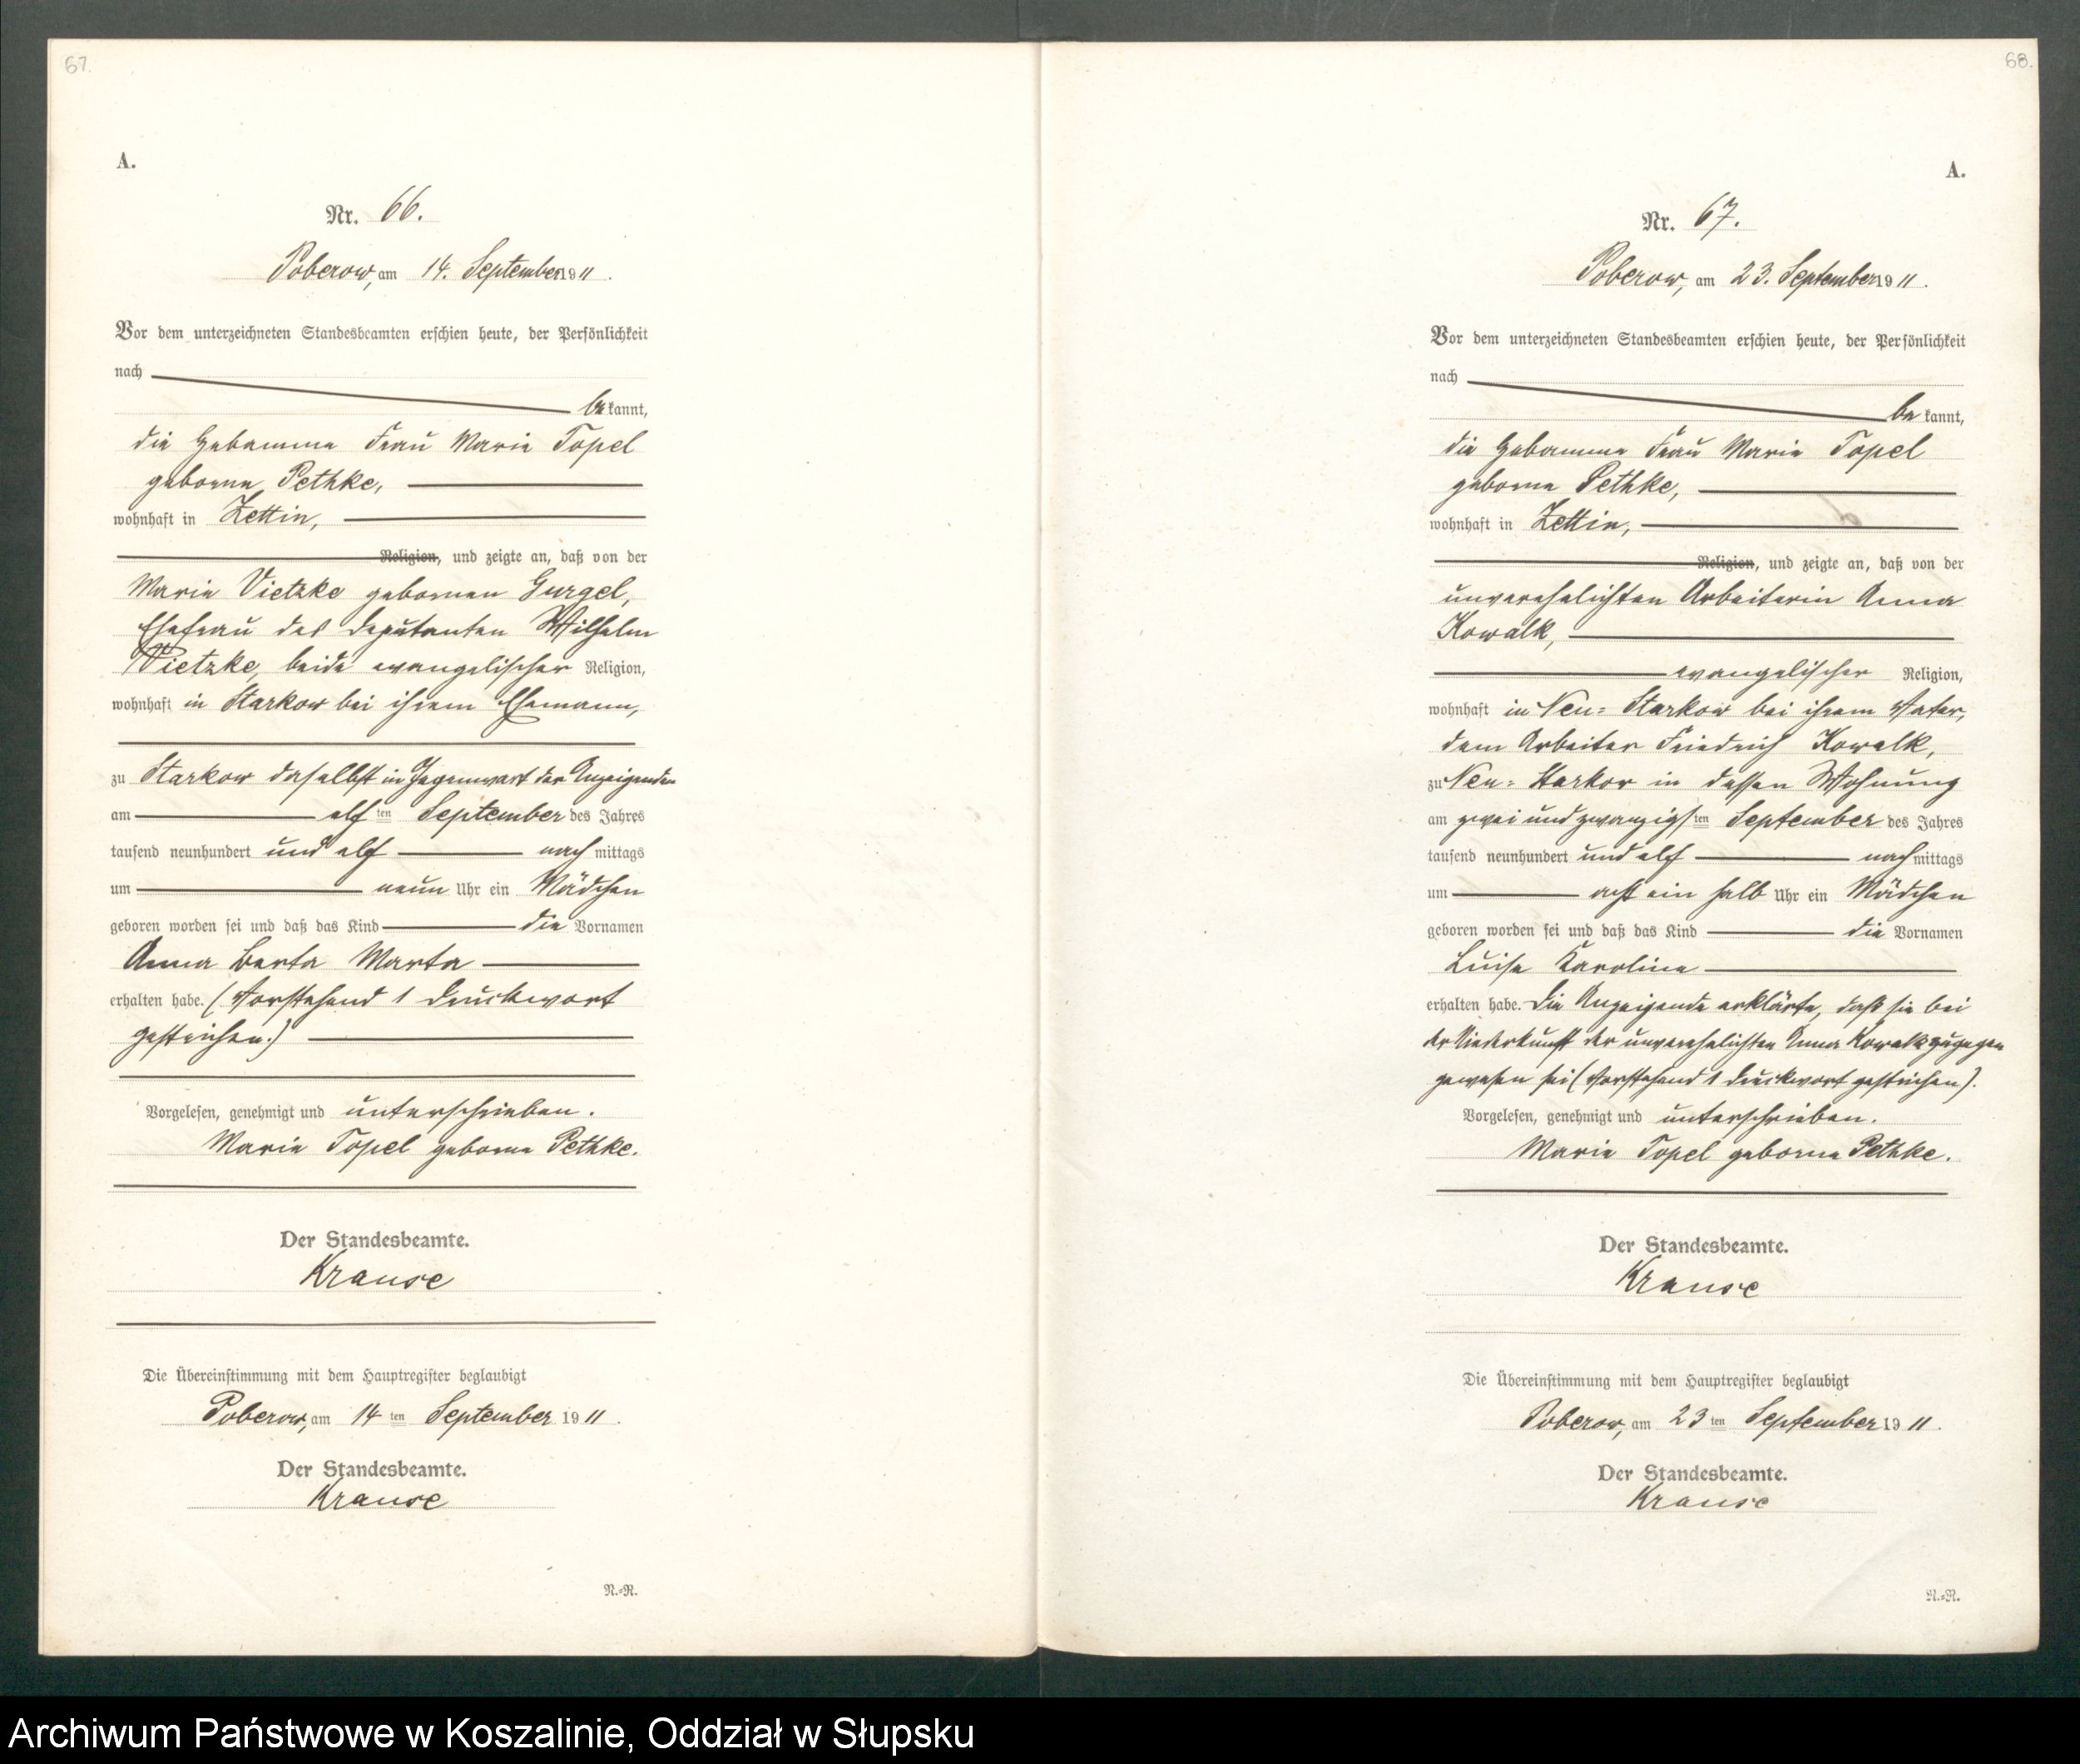 67.
A.
Nr. 66.
Poberow, am 14. September 1911.
Vor dem unterzeichneten Standesbeamten erschien heute, der Persönlichkeit
nach
bekannt,
die Hebamme Frau Marie Topel
geborne Pethke,
wohnhaft in Zettin,
Religion, und zeigte an, daß von der
Marie Vietzke gebornen Gurgel,
Ehefrau des Deputanten Wilhelm
Vietzke, beide evangelischer Religion,
wohnhaft in Starkow bei ihrem Ehemann,
zu Starkow daselbst in Gegenwart der Anzeigenden
am elften September des Jahres
tausend neunhundert und elf nachmittags
um neun Uhr ein Mädchen
geboren worden sei und daß das Kind die Vornamen
Anna Berta Marta
erhalten habe. (Vorstehend 1 Druckwort
gestrichen.)
Vorgelesen, genehmigt und unterschrieben.
Marie Topel geborne Pethke.
Der Standesbeamte.
Krause
Die Übereinstimmung mit dem Hauptregister beglaubigt
Poberow, am 14ten September 1911.
Der Standesbeamte.
Krause
N.=N.
68.
A.
Nr. 67.
Poberow, am 23. September 1911.
Vor dem unterzeichneten Standesbeamten erschien heute, der Persönlichkeit
nach
bekannt,
die Hebamme Frau Marie Topel
geborne Pethke,
wohnhaft in Zettin,
Religion, und zeigte an, daß von der
unverehelichten Arbeiterin Anna
Kowalk,
evangelischer Religion,
wohnhaft in Neu=Starkow bei ihrem Vater,
dem Arbeiter Friedrich Kowalk,
zu Neu=Starkow in dessen Wohnung
am zwei und zwanzigsten September des Jahres
tausend neunhundert und elf nachmittags
um acht ein halb Uhr ein Mädchen
geboren worden sei und daß das Kind die Vornamen
Luise Karoline
erhalten habe. Die Anzeigende erklärte, daß sie bei
der Niederkunft der unverehelichten Anna Kowalk zugegen
gewesen sei (Vorstehend 1 Druckwort gestrichen).
Vorgelesen, genehmigt und unterschrieben.
Marie Topel geborne Pethke.
Der Standesbeamte.
Krause
Die Übereinstimmung mit dem Hauptregister beglaubigt
Poberow, am 23ten September 1911.
Der Standesbeamte.
Krause
N.=N.
Archiwum Państwowe w Koszalinie, Oddział w Słupsku